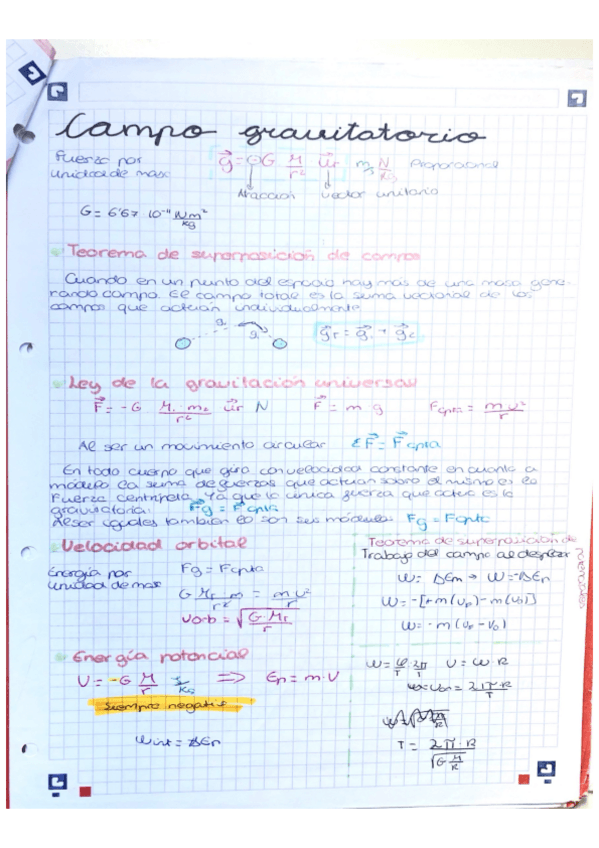 Campo gravitatorio
Fuerza por
unidad de masa
g = (-)G M/r² ur m/s N/Kg Proporcional
Atracción
vector unitario
G = 6'67 10⁻¹¹ Nm²/kg
Teorema de superposición de campos
Cuando en un punto del espacio hay más de una masa gene-
rando campo. El campo total es la suma vectorial de los
campos que actúan individualmente
Ley de la gravitación universal
F = -G M₁ m₂/r² ur N F = m g Fcpta = m v²/r
Al ser un movimiento circular ΣF = Fcpta
En todo cuerpo que gira con velocidad constante en cuanto a
módulo la suma de fuerzas que actúan sobre el mismo es la
Fuerza centrípeta. Ya que la única fuerza que actúa es la
gravitatoria: Fg = Fcpta
Al ser iguales también lo son sus módulos Fg = Fcpta
Velocidad orbital
Energía por
unidad de mas
Fg = Fcpta
G MT m/r² = m v²/r
vorb = √G·MT/r
Energía potencial
U = -G M/r J/Kg ⇒ Ep = m·V
Siempre negativo
Wint = ΔEp
Teorema de superposición de
potenciales
Trabajo del campo al desplazar
W = ΔEm → W = -ΔEp
W = -[+m(VF) - m(V0)]
W = -m(VF - V0)
W = φ/T 2π/T U = W·R
Vorb = 2π·R/T
T = 2π·R/√G M/R